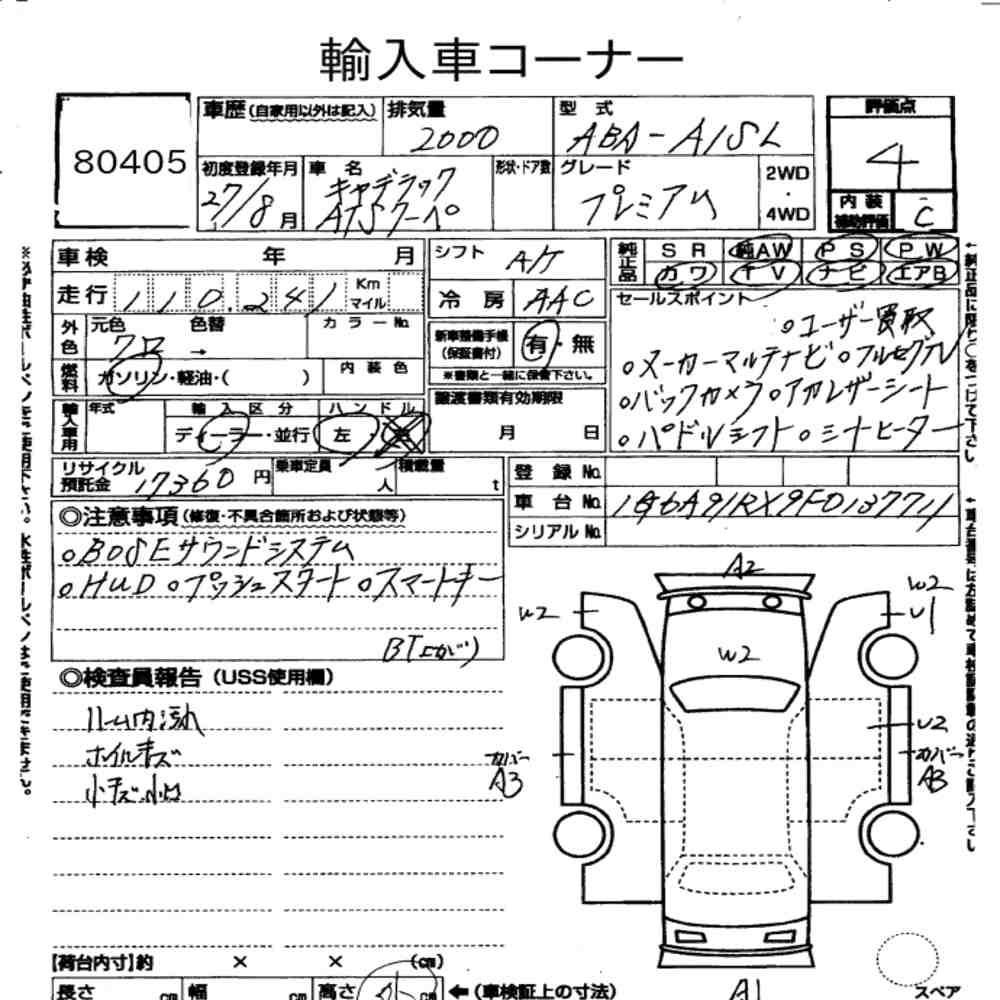 輸入車コーナー
80405
車歴(自家用以外は記入)
排気量
2000
型 式
ABA-A1SL
評価点
4
内装
補助評価
C
初度登録年月
27/8月
車 名
キャデラック
ATSクーペ
形状・ドア数
グレード
プレミアム
2WD
・
4WD
車検 年 月
シフト
A/T
純正品
SR 純AW PS PW
カワ TV ナビ エアB
走行 110,241 Km マイル
冷 房 AAC
セールスポイント
○ユーザー買取
○メーカーマルチナビ ○フルセグTV
○バックカメラ ○アカレザーシート
○パドルシフト ○シートヒーター
外色
元色 色替 カラーNo.
クロ →
新車整備手帳
(保証書付)
有・無
※書類と一緒に保管下さい。
燃料
ガソリン・軽油・( )
内装色
輸入車用
年式
輸入区分
ディーラー・並行
ハンドル
左・右
譲渡書類有効期限
月 日
リサイクル
預託金
17360円
乗車定員
人
積載量
t
登録No.
車台No. 1G6A91RX9F0137711
シリアルNo.
◎注意事項(修復・不具合箇所および状態等)
○BOSEサウンドシステム
○HUD ○プッシュスタート ○スマートキー
◎検査員報告(USS使用欄)
ルーム内汚れ
ホイルキズ
小キズ・小凹
A2
W2
W2
U1
W2
U2
カバー
A3
カバー
A3
A1
【荷台内寸】約 × × (cm)
長さ cm 幅 cm 高さ cm
←(車検証上の寸法)
スペア